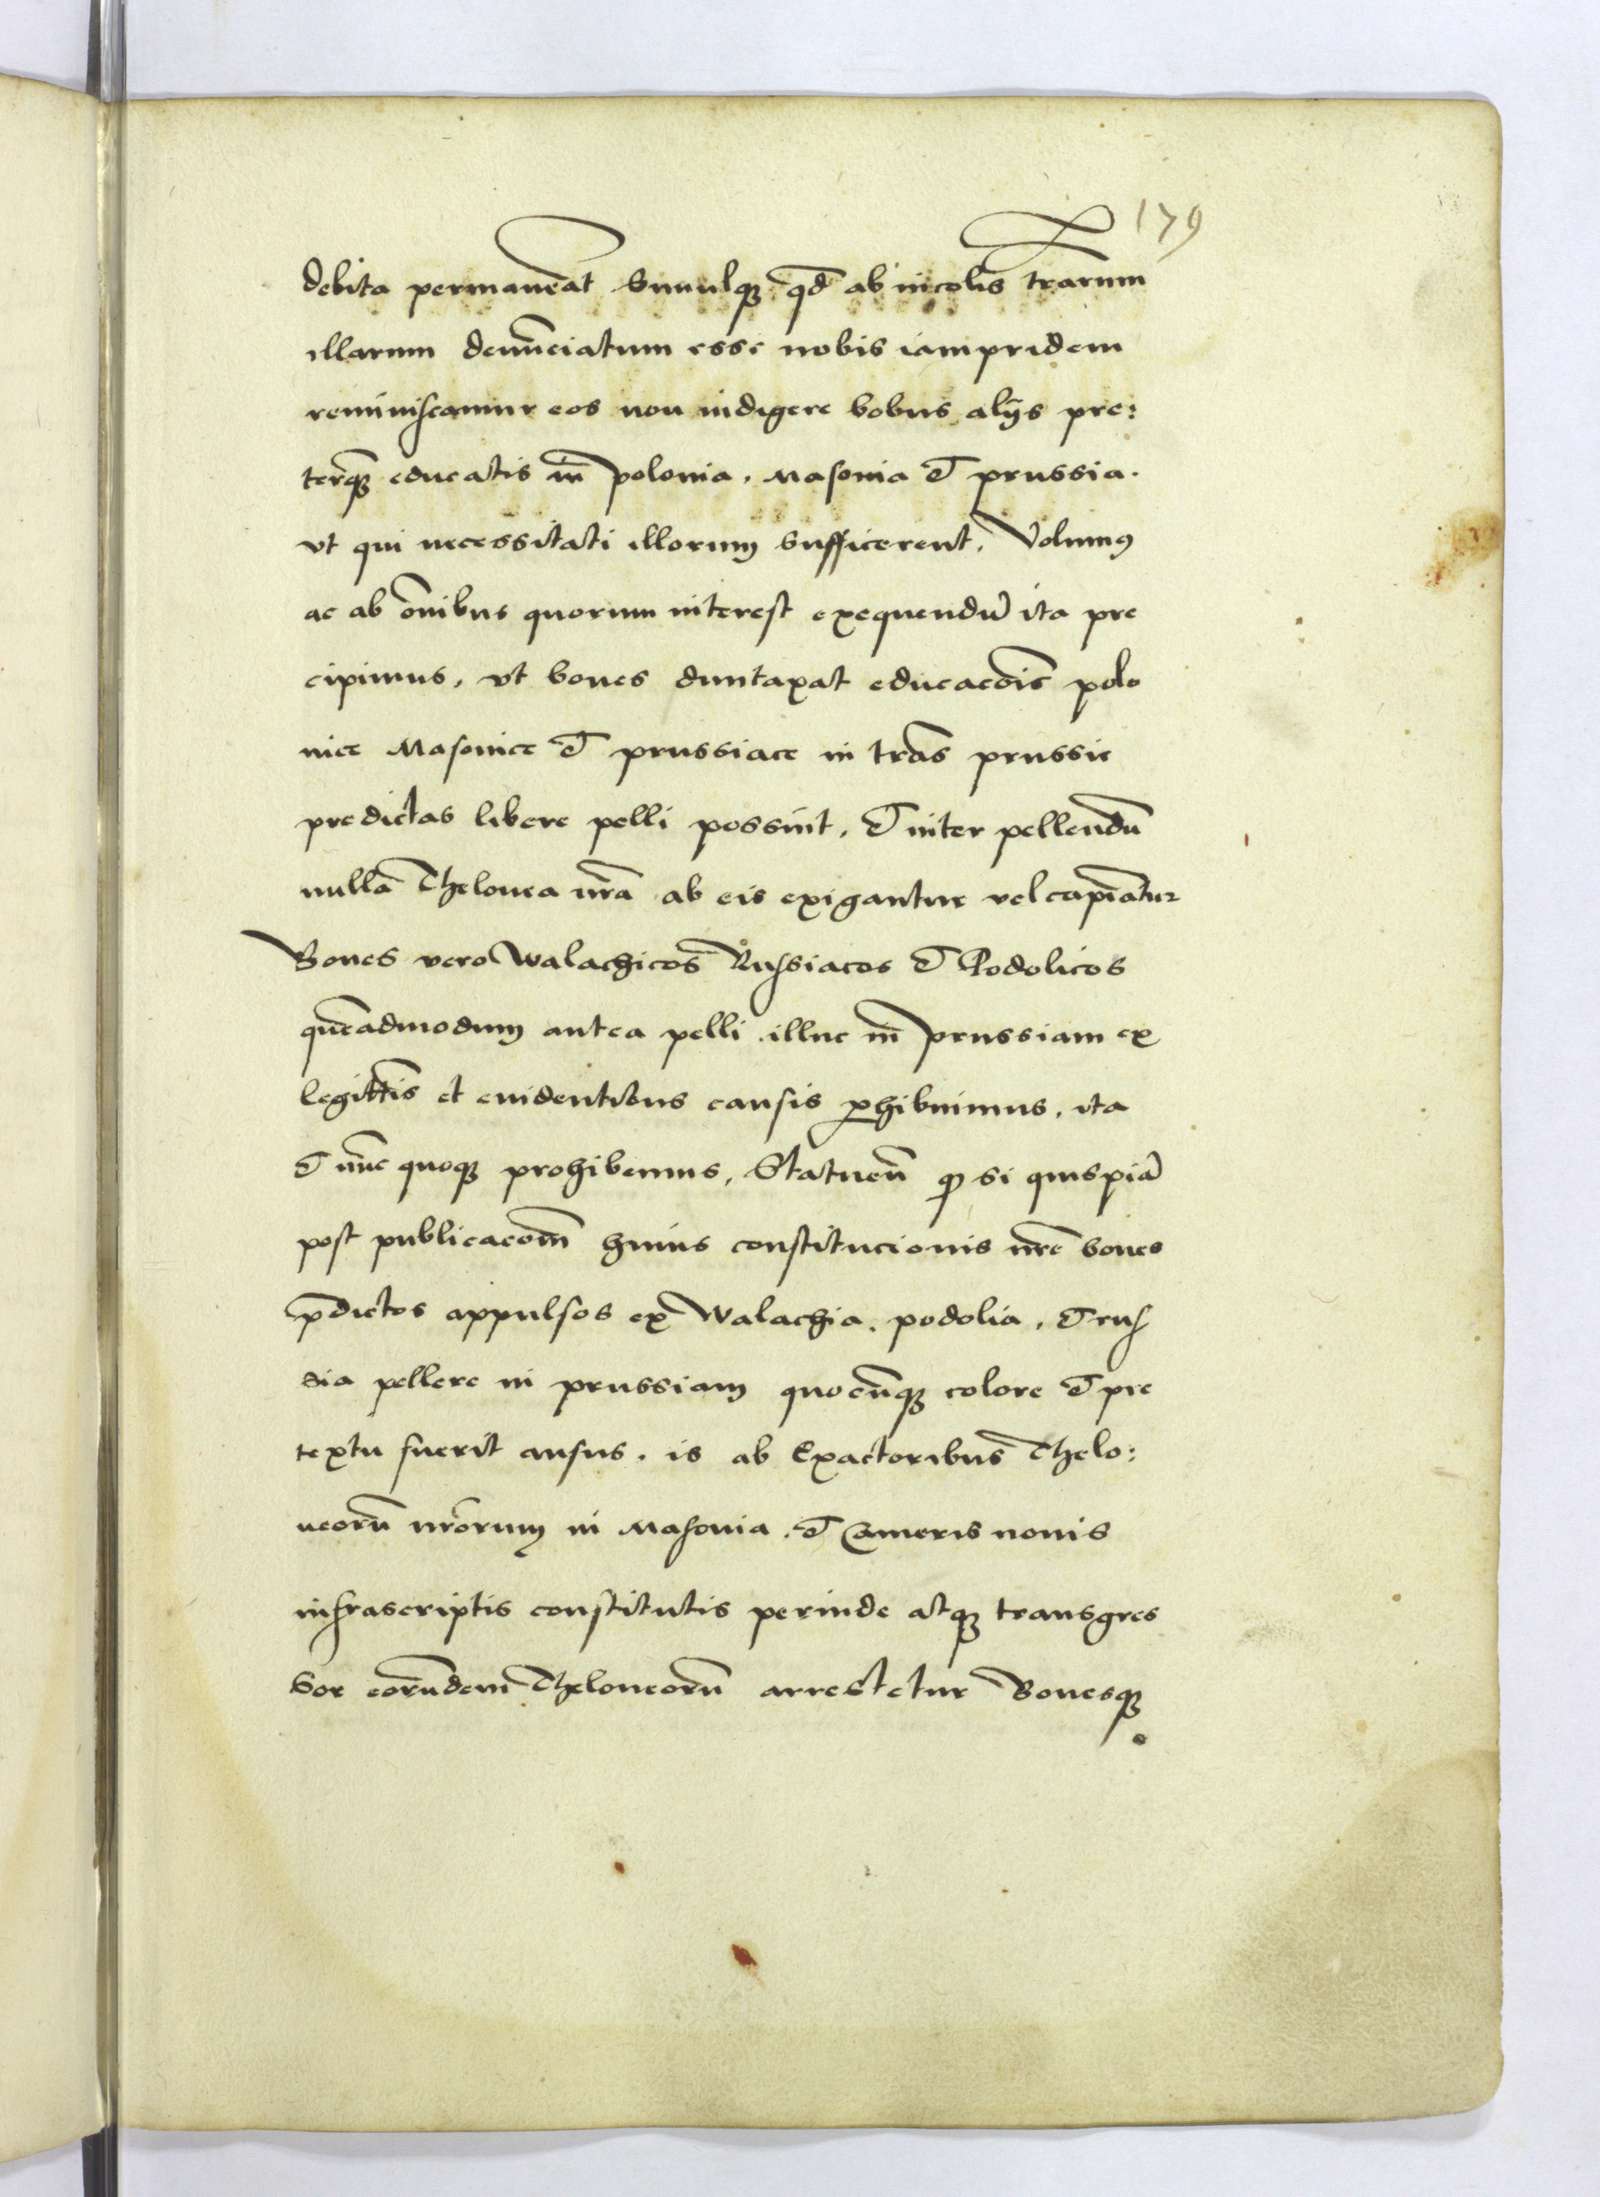 179
debita permaneāt Simulqȝ qd̄ ab incolis tr̄arum
illarum denūnciatum esse nobis iampridem
reminiscamur eos non indigere bobus alijs pre:
terqȝ educatis in polonia. Masonia et prussia.
vt qui necessitati illorum sufficerent, Volumus
ac ab om̄ibus quorum interest exequendū ita pre
cipimus, vt boues duntaxat educac̄ois polo
nice Masouice et prussiace in tr̄as prussie
predictas libere pelli possint, et inter pellendū
nulla Thelonea nr̄a ab eis exigantur vel capiātur
Boues vero Walachicos Russiacos et Podolicos
quēadmodum antea pelli illuc in prussiam ex
legittīs et euidentibus causis ꝓhibuimus, ita
et nūc quoqȝ prohibemus, Statuen̄ ꝙ si quispiā
post publicac̄om̄ huius constitucionis nr̄e boues
p̄dictos appulsos ex Walachia, podolia, et rus
sia pellere in prussiam quocūqȝ colore et pre
textu fuerit ausus, is ab Exactoribus Thelo:
neorū nr̄orum in Masouia et Cameris nouis
infrascriptis constitutis perinde atqȝ transgres
sor eorūdem Theloneorū arrestetur Bouesqȝ